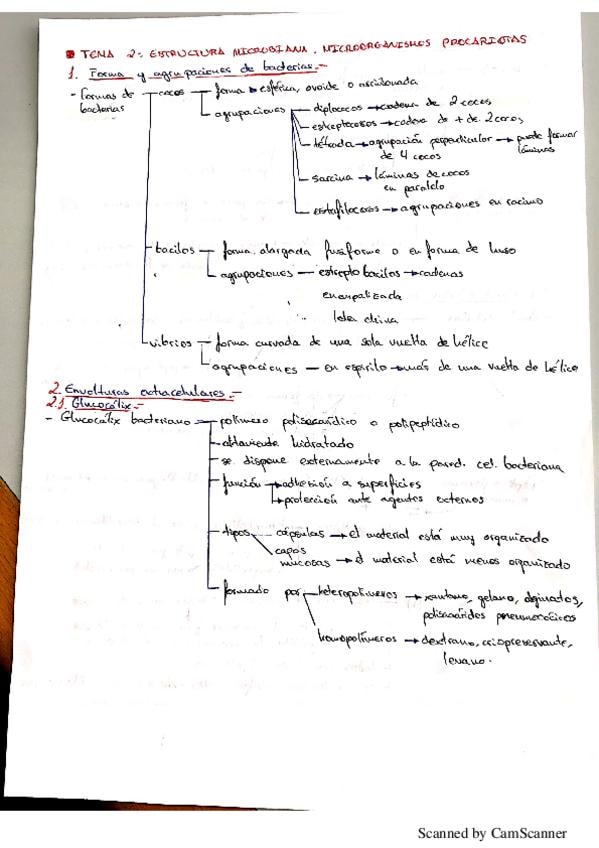 TEMA 2: ESTRUCTURA MICROBIANA. MICROORGANISMOS PROCARIOTAS
1. Forma y agrupaciones de bacterias.-
- Formas de bacterias
cocos
forma → esférica, ovoide o arriñonada
agrupaciones
diplococos → cadena de 2 cocos
estreptococos → cadena de + de 2 cocos
tétrada → agrupación perpendicular de 4 cocos → puede formar láminas
sarcina → láminas de cocos en paralelo
estafilococos → agrupaciones en racimo
bacilos
forma alargada fusiforme o en forma de huso
agrupaciones
estrepto bacilos → cadenas
en empalizada
letra china
vibrios
forma curvada de una sola vuelta de hélice
agrupaciones — en espirilo → más de una vuelta de hélice
2. Envolturas extracelulares.-
2.1. Glucocálix.-
- Glucocálix bacteriano
polímero polisacarídico o polipeptídico
altamente hidratado
se dispone externamente a la pared. cel. bacteriana
función
→ adhesión a superficies
→ protección ante agentes externos
tipos
cápsulas → el material está muy organizado
capas mucosas → el material está menos organizado
formado por
heteropolímeros → xantano, gelano, alginatos, polisacáridos pneumocócicos
homopolímeros → dextrano, levano.
Scanned by CamScanner